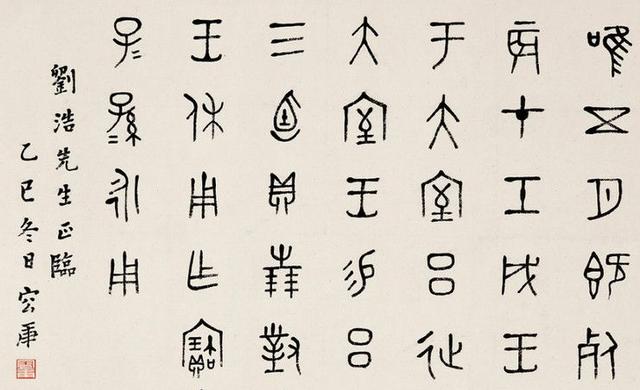 唯五月既死
辰才壬戌王
于大室呂延
大室王易呂
三卣貝卅朋對
王休用乍寶
子子孫孫永用
劉浩先生正臨
乙巳冬日